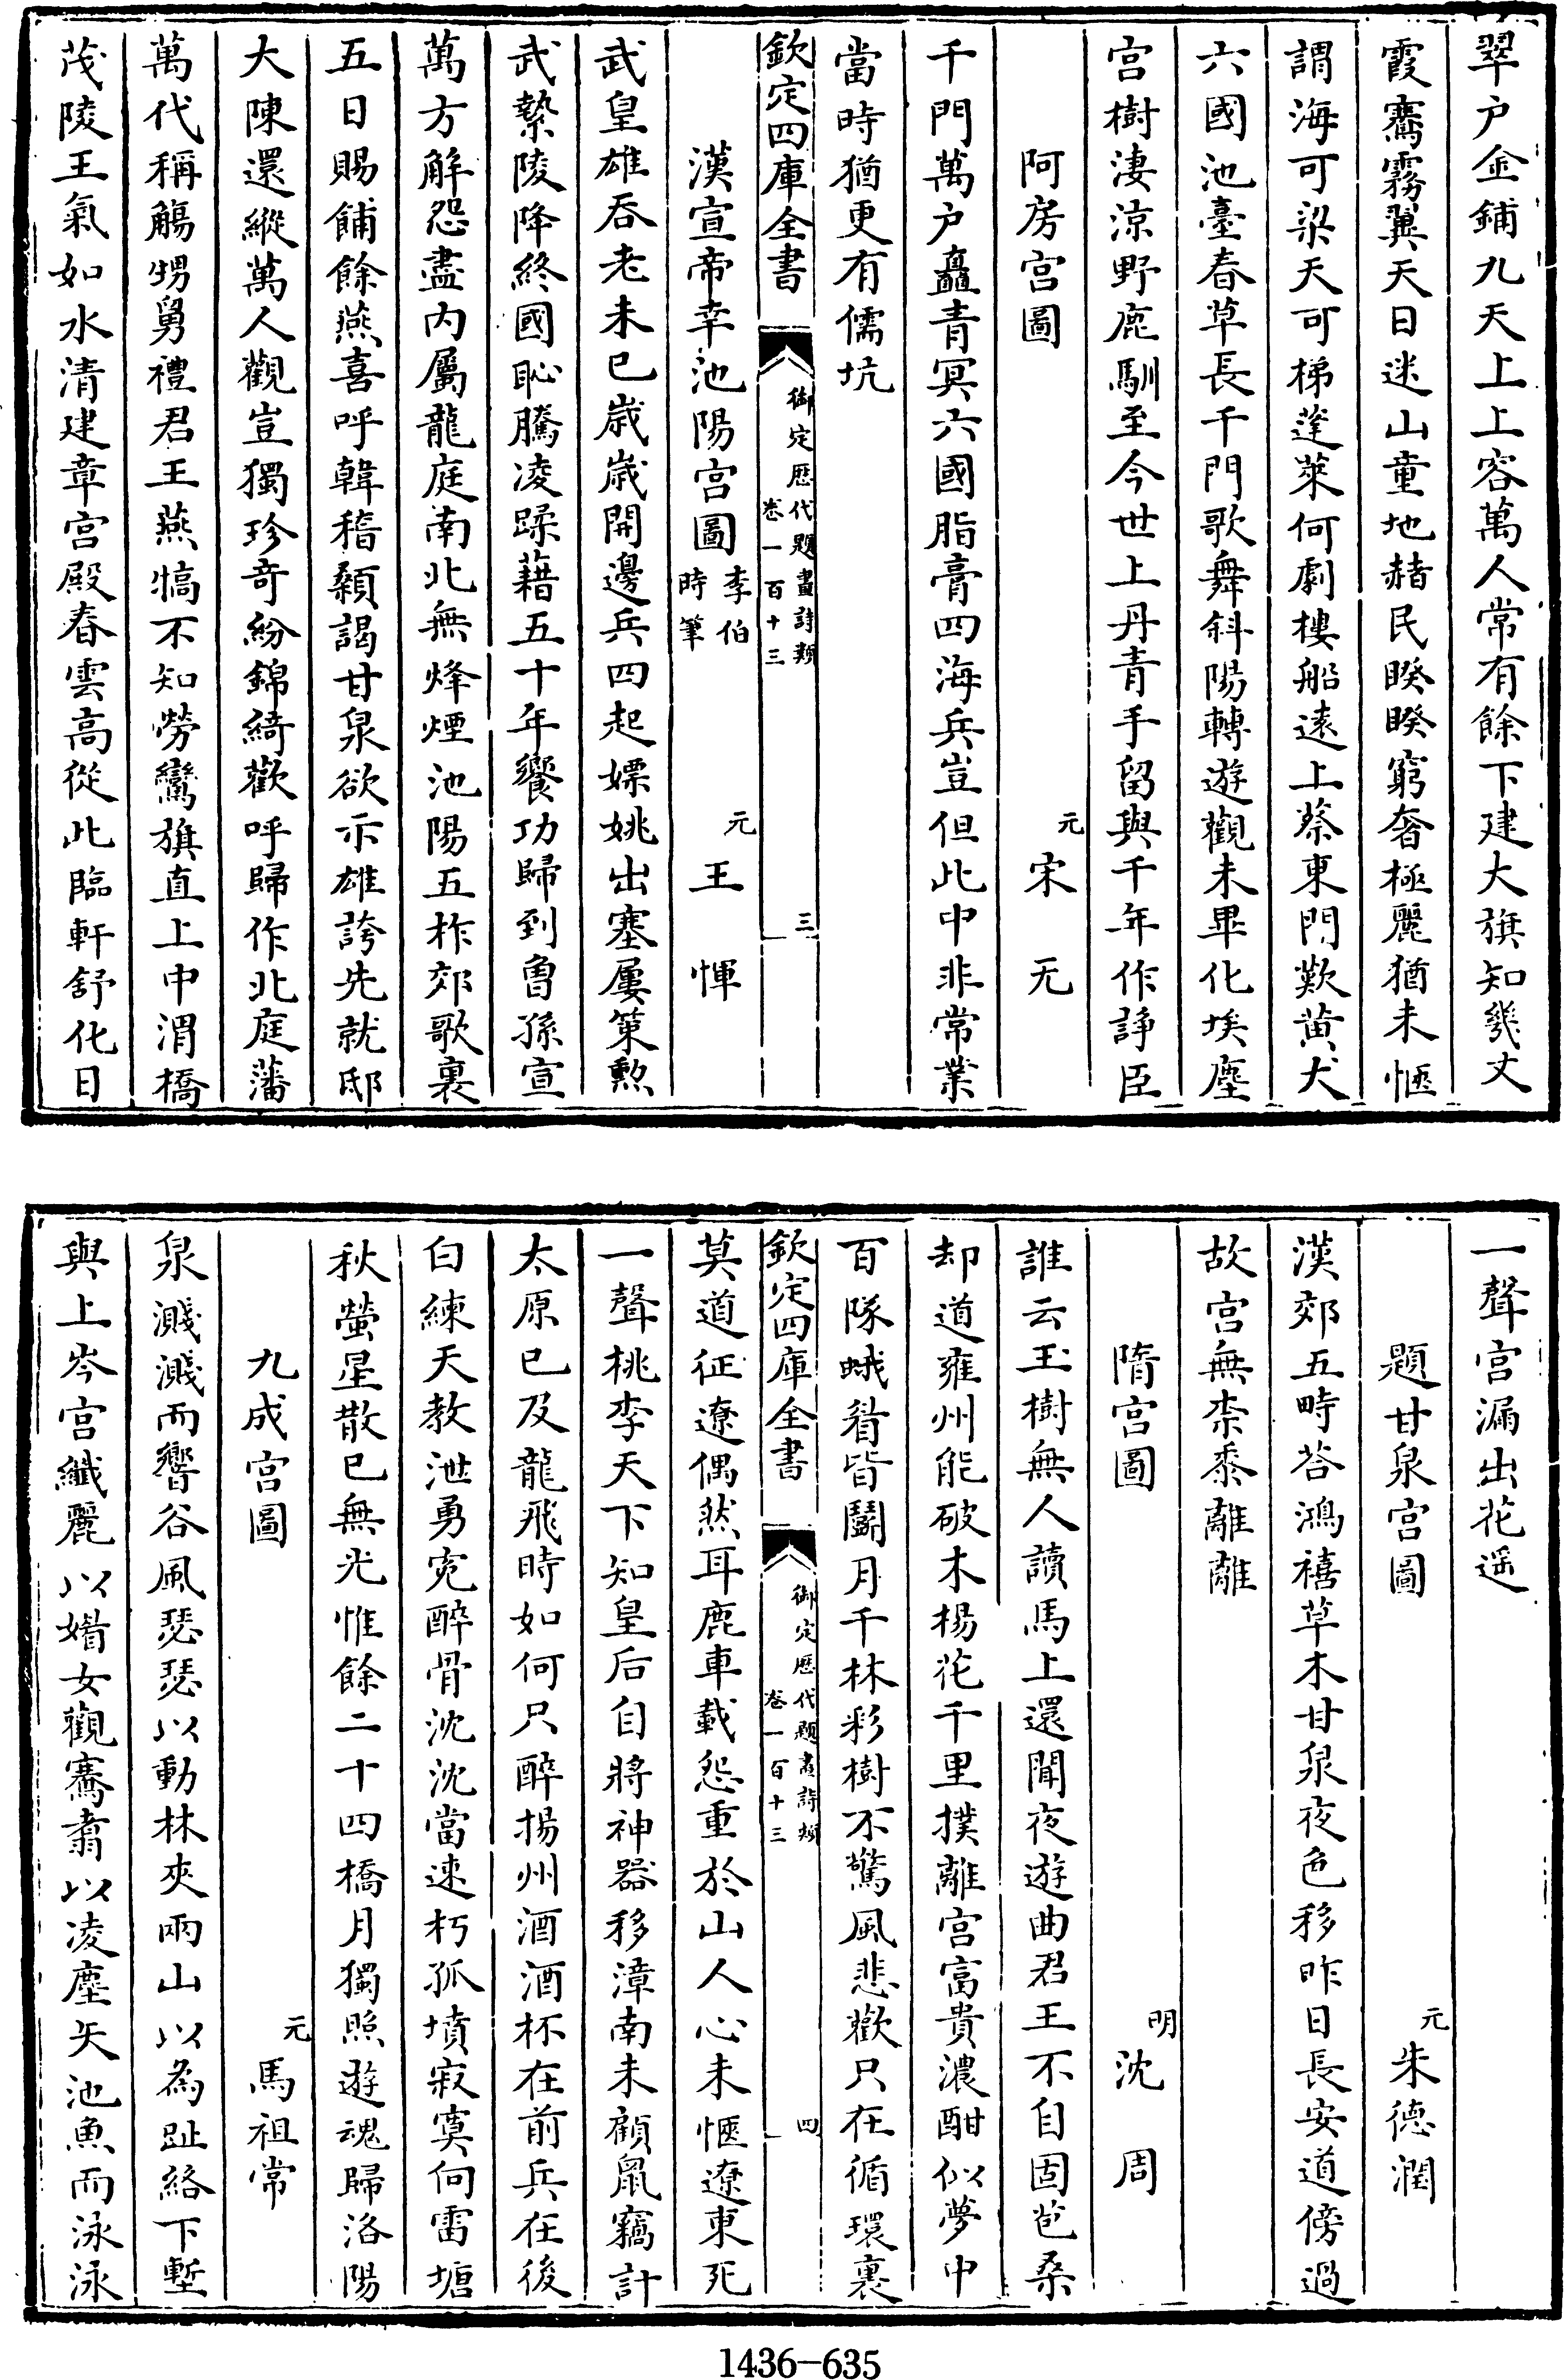 翠户金鋪九天上上容萬人常有餘下建大旗知幾丈
霞騫霧翼天日迷山童地赭民睽睽窮奢極麗猶未愜
謂海可梁天可梯蓬萊何劇樓船逺上蔡東門歎黄犬
六國池臺春草長千門歌舞斜陽轉遊觀未畢化埃塵
宫樹淒涼野鹿馴至今世上丹青手留與千年作諍臣
阿房宫圖　元宋无
千門萬户矗青冥六國脂膏四海兵豈但此中非常業
當時猶更有儒坑
欽定四庫全書　御定歴代題畫詩類卷一百十三　三
漢宣帝幸池陽宫圖李伯時筆　元王惲
武皇雄吞老未已歳歳開邊兵四起嫖姚出塞屢策勲
武縶陵降終國恥騰凌蹂藉五十年饗功歸到曾孫宣
萬方解怨盡内屬龍庭南北無烽煙池陽五柞郊歌裏
五日賜餔餘燕喜呼韓稽顙謁甘泉欲示雄誇先就邸
大陳還縱萬人觀豈獨珍奇紛錦綺歡呼歸作北庭藩
萬代稱觴甥舅禮君王燕犒不知勞鸞旗直上中渭橋
茂陵王氣如水清建章宫殿春雲高從此臨軒舒化日
一聲宫漏出花遥
題甘泉宫圖　元朱德潤
漢郊五畤荅鴻禧草木甘泉夜色移昨日長安道傍過
故宫無柰黍離離
隋宫圖　明沈周
誰云玉樹無人讀馬上還聞夜遊曲君王不自固苞桑
却道雍州能破木楊花千里撲離宫富貴濃酣似夢中
百隊蛾眉皆鬭月千林彩樹不驚風悲歡只在循環裏
欽定四庫全書　御定歴代題畫詩類卷一百十三　四
莫道征遼偶然耳鹿車載怨重於山人心未愜遼東死
一聲桃李天下知皇后自將神器移漳南未顧鼠竊計
太原已及龍飛時如何只醉揚州酒酒杯在前兵在後
白練天教泄勇寃醉骨沈沈當速朽孤墳寂寞何雷塘
秋螢星散已無光惟餘二十四橋月獨照遊魂歸洛陽
九成宫圖　元馬祖常
泉濺濺而響谷風瑟瑟以動林夾兩山以為趾絡下塹
與上岑宫纎麗以婿女觀騫翥以凌塵矢池魚而泳泳
1436—635